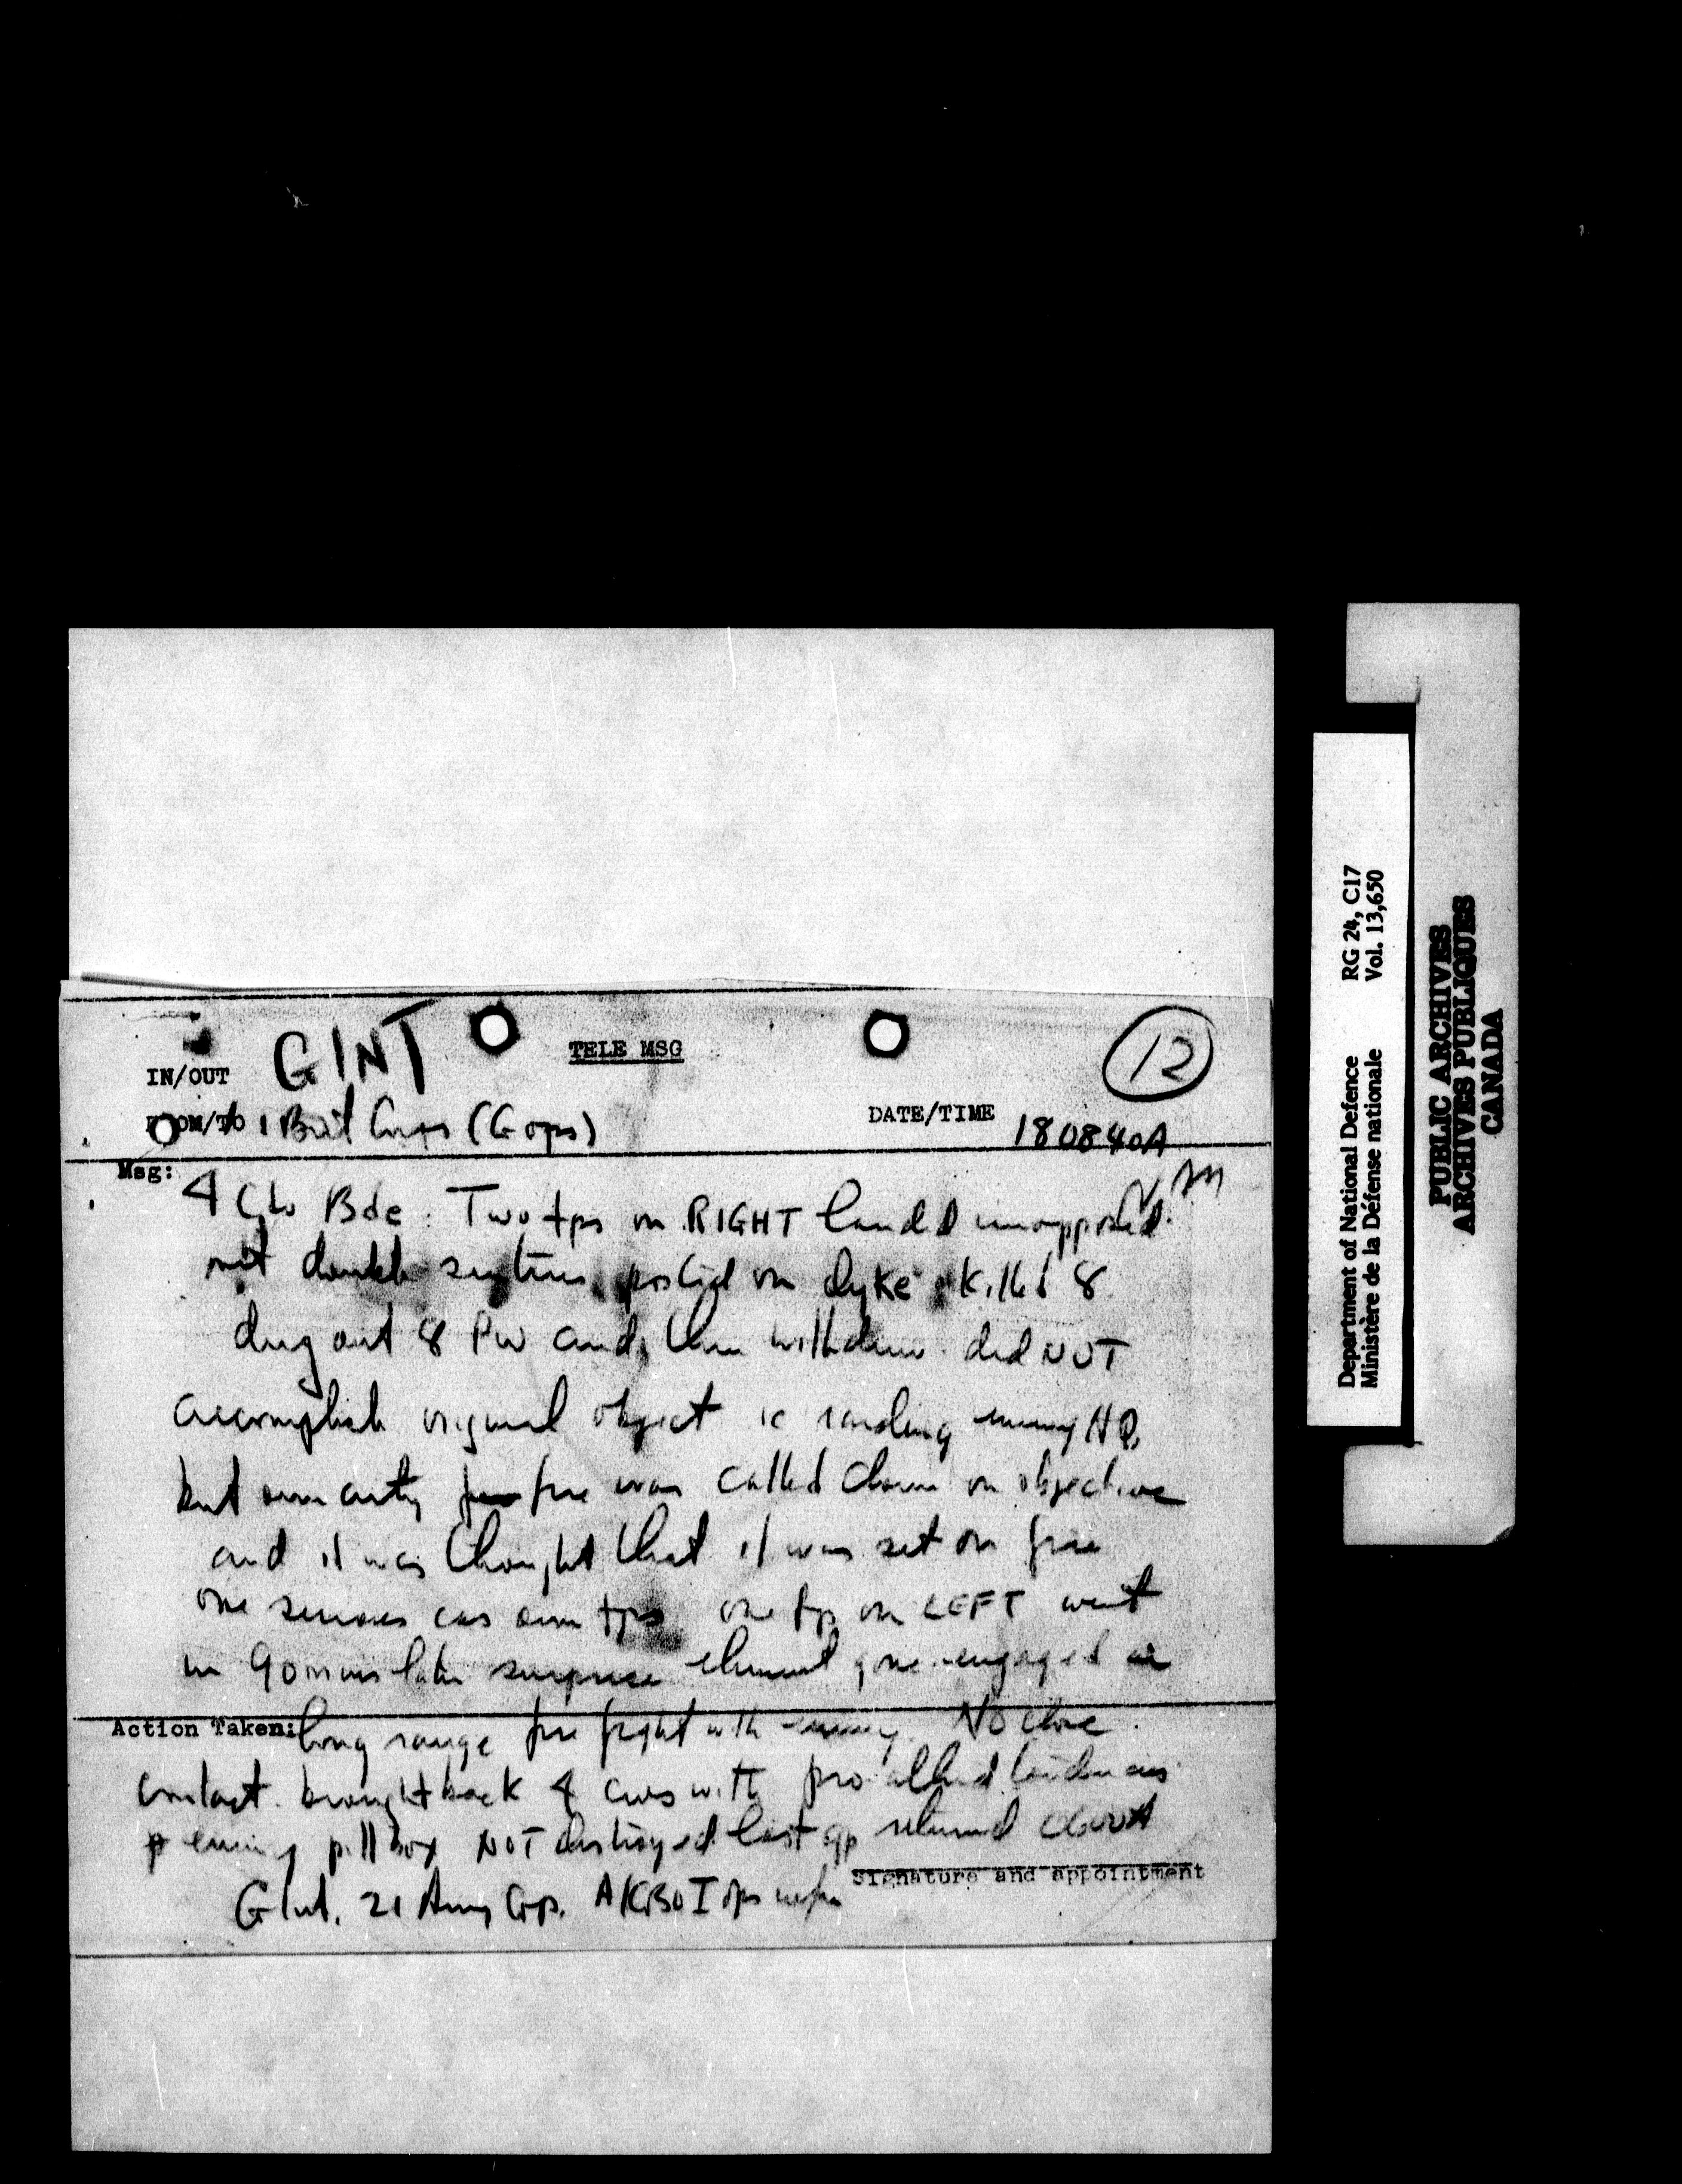 GINT
TELE MSG
12
IN/OUT
FROM/TO 1 Brit Corps (G ops)
DATE/TIME 180840A
Msg:
4 Cdo Bde : Two tps on RIGHT landed unopposed.
met double sentries posted on dyke. Killed 8
dug out 8 PW and then withdrew. did NOT
accomplish original object ie raiding enemy HQ,
but own arty fire was called down on objective
and it was thought that it was set on fire
one serious cas own tps one tp on LEFT went
in 90 mins later surprise element gone. engaged in
Action Taken: long range fire fight with enemy. NO close
contact. brought back 4 civs with pro allied tendencies
enemy pillbox NOT destroyed. last gp returned
Signature and appointment
G Int. 21 Army Gp. ops
Department of National Defence RG 24, C17
Ministère de la Défense nationale Vol. 13,650
PUBLIC ARCHIVES
ARCHIVES PUBLIQUES
CANADA